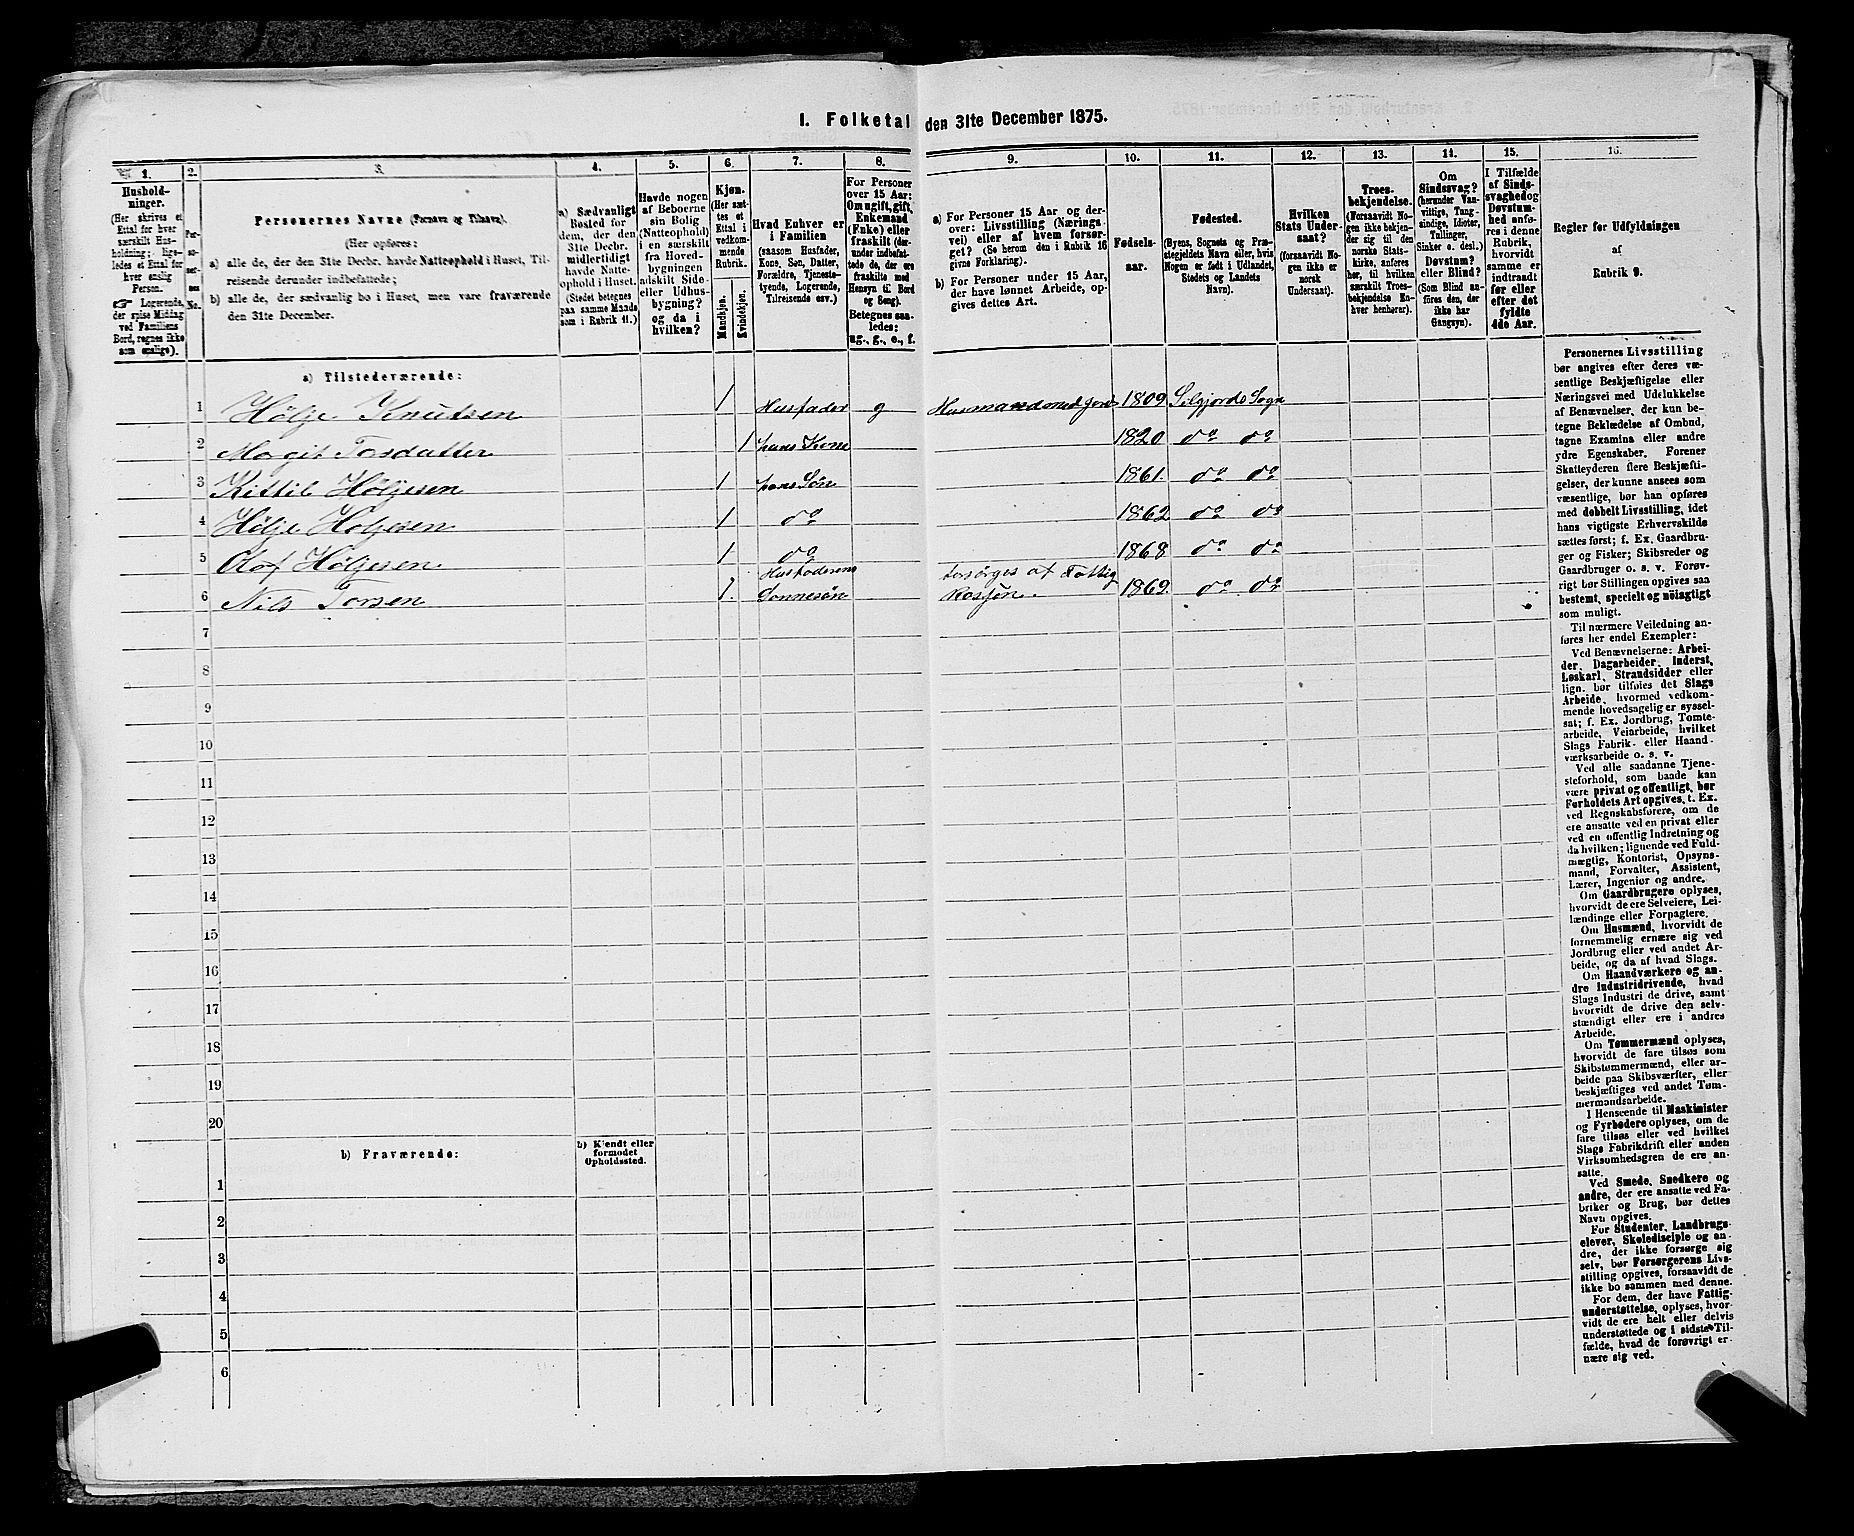 I. Folketal den 31te December 1875.
1.
Hushold-
ninger.
(Her skrives et
Ettal for hver
særskilt Hus-
holdning; lige-
ledes et Ettal for
hver enslig
Person.
☞ Logerende,
der spise Middag
ved Familiens
Bord, regnes ikke
som enslige).
2.
Per-
so-
ner-
nes
No.
3.
Personernes Navne (Fornavn og Tilnavn).
(Her opføres:
a) alle de, der den 31te Decbr. havde Natteophold i Huset, Til-
reisende derunder indbefattede;
b) alle de, der sædvanlig bo i Huset, men vare fraværende
den 31te December.
4.
a) Sædvanligt
Bosted for
dem, der den
31te Decbr.
midlertidigt
havde Natte-
ophold i Huset.
(Stedet betegnes
paa samme Maade
som i Rubrik 11.)
5.
Havde nogen
af Beboerne
sin Bolig
(Natteophold)
i en særskilt
fra Hoved-
bygningen
adskilt Side-
eller Udhus-
bygning?
og da i
hvilken?
6.
Kjøn.
(Her sæt-
tes et
Ettal i
vedkom-
mende
Rubrik.
Mandkjøn.
Kvindekjøn.
7.
Hvad Enhver er
i Familien
(saasom Husfader,
Kone, Søn, Datter,
Forældre, Tjeneste-
tyende, Logerende,
Tilreisende osv.)
8.
For Personer
over 15 Aar:
Om ugift, gift,
Enkemand
(Enke) eller
fraskilt (der-
under indbefat-
tede de, der ere
fraskilte med
Hensyn til Bord
og Seng).
Betegnes saa-
ledes:
ug., g., e., f.
9.
a) For Personer 15 Aar og der-
over: Livsstilling (Nærings-
vei) eller af hvem forsør-
get? (Se herom den i Rubrik 16
givne Forklaring).
b) For Personer under 15 Aar,
der have lønnet Arbeide, op-
gives dettes Art.
10.
Fødsels-
aar.
11.
Fødested.
(Byens, Sognets og Præ-
stegjeldets Navn eller, hvis
Nogen er født i Udlandet,
Stedets og Landets
Navn).
12.
Hvilken
Stats Under-
saat?
(forsaavidt No-
gen ikke er
norsk
Undersaat).
13.
Troes-
bekjendelse.
(Forsaavidt No-
gen ikke bekjen-
der sig til den
norske Stats-
kirke, anføres
her, til hvilken
særskilt Troes-
bekjendelse En-
hver henhører).
14.
Om
Sindssvag?
(herunder Van-
vittige, Tung-
sindige, Idioter,
Tullinger,
Sinker o. desl.)
Døvstum?
eller Blind?
(Som Blind an-
føres den, der
ikke har
Gangsyn).
15.
I Tilfælde
af Sinds-
svaghed og
Døvstum-
hed anfø-
res i denne
Rubrik,
hvorvidt
samme er
indtraadt
før eller
efter det
fyldte
4de Aar.
16.
Regler for Udfyldningen
af
Rubrik 9.
a) Tilstedeværende:
1 Hølje Knutsen 1 Husfader g Husmand med Jord 1809 Silgjords Sogn
2 Magit Torsdatter 1 hans Kone 1820 do do
3 Kittil Høljesen 1 hans Søn 1861. do do
4 Hølje Høljesen 1 do 1862 do do
5 Olof Høljesen 1 do 1868 do do
6 Nils Torsen 1. Husfaderens
Sønnesøn forsørges af Fattig
Kassen. 1869. do do
7
8
9
10
11
12
13
14
15
16
17
18
19
20
b) Fraværende:
b) Kjendt eller
formodet
Opholdssted.
1
2
3
4
5
6
Personernes Livsstilling
bør angives efter deres væ-
sentlige Beskjæftigelse eller
Næringsvei med Udelukkelse
af Benævnelser, der kun be-
tegne Beklædelse af Ombud,
tagne Examina eller andre
ydre Egenskaber. Forener
Skatteyderen flere Beskjæfti-
gelser, der kunne ansees som
væsentlige, bør han opføres
med dobbelt Livsstilling, idet
hans vigtigste Erhvervskilde
sættes først; f. Ex. Gaardbru-
ger og Fisker; Skibsreder og
Gaardbruger o. s. v. Forøv-
rigt bør Stillingen opgives saa
bestemt, specielt og nöiagtigt
som muligt.
Til nærmere Veiledning an-
føres her endel Exempler:
Ved Benævnelserne: Arbei-
der, Dagarbeider, Inderst,
Løskarl, Strandsidder eller
lign. bør tilføies det Slags
Arbeide, hvormed vedkom-
mende hovedsagelig er syssel-
sat; f. Ex. Jordbrug, Tomte-
arbeide, Veiarbeide, hvilket
Slags Fabrik- eller Haand-
værksarbeide o. s. v.
Ved alle saadanne Tjene-
steforhold, som baade kan
være privat og offentligt, bør
Forholdets Art opgives, t. Ex.
ved Regnskabsførere, om de
ere ansatte ved en privat eller
ved en offentlig Indretning og
da hvilken; lignende ved Fuld-
mægtig, Kontorist, Opsyns-
mand, Forvalter, Assistent,
Lærer, Ingeniør og andre.
Om Gaardbrugere oplyses,
hvorvidt de ere Selveiere, Lei-
lændinge eller Forpagtere.
Om Husmænd, hvorvidt de
fornemmelig ernære sig ved
Jordbrug eller ved andet Ar-
beide, og da af hvad Slags.
Om Haandværkere og an-
dre Industridrivende, hvad
Slags Industri de drive, samt
hvorvidt de drive den selv-
stændigt eller ere i andres
Arbeide.
Om Tømmermænd oplyses,
hvorvidt de fare tilsøs som
Skibstømmermænd, eller ar-
beide paa Skibsværfter, eller
beskjæftiges ved andet Tøm-
mermandsarbeide.
I Henseende til Maskinister
og Fyrbødere oplyses, om de
fare tilsøs eller ved hvilket
Slags Fabrikdrift eller anden
Virksomhedsgren de ere an-
satte.
Ved Smede, Snedkere og
andre, der ere ansatte ved Fa-
briker og Brug, bør dettes
Navn opgives.
For Studenter, Landbrugs-
elever, Skoledisciple og an-
dre, der ikke forsørge sig
selv, bør Forsørgerens Livs-
stilling opgives, forsaavidt de
ikke bo sammen med denne.
For dem, der have Fattig-
understøttelse, oplyses, hvor-
vidt de ere helt eller delvis
understøttede og i sidste Til-
fælde, hvad de forøvrigt er-
nære sig ved.